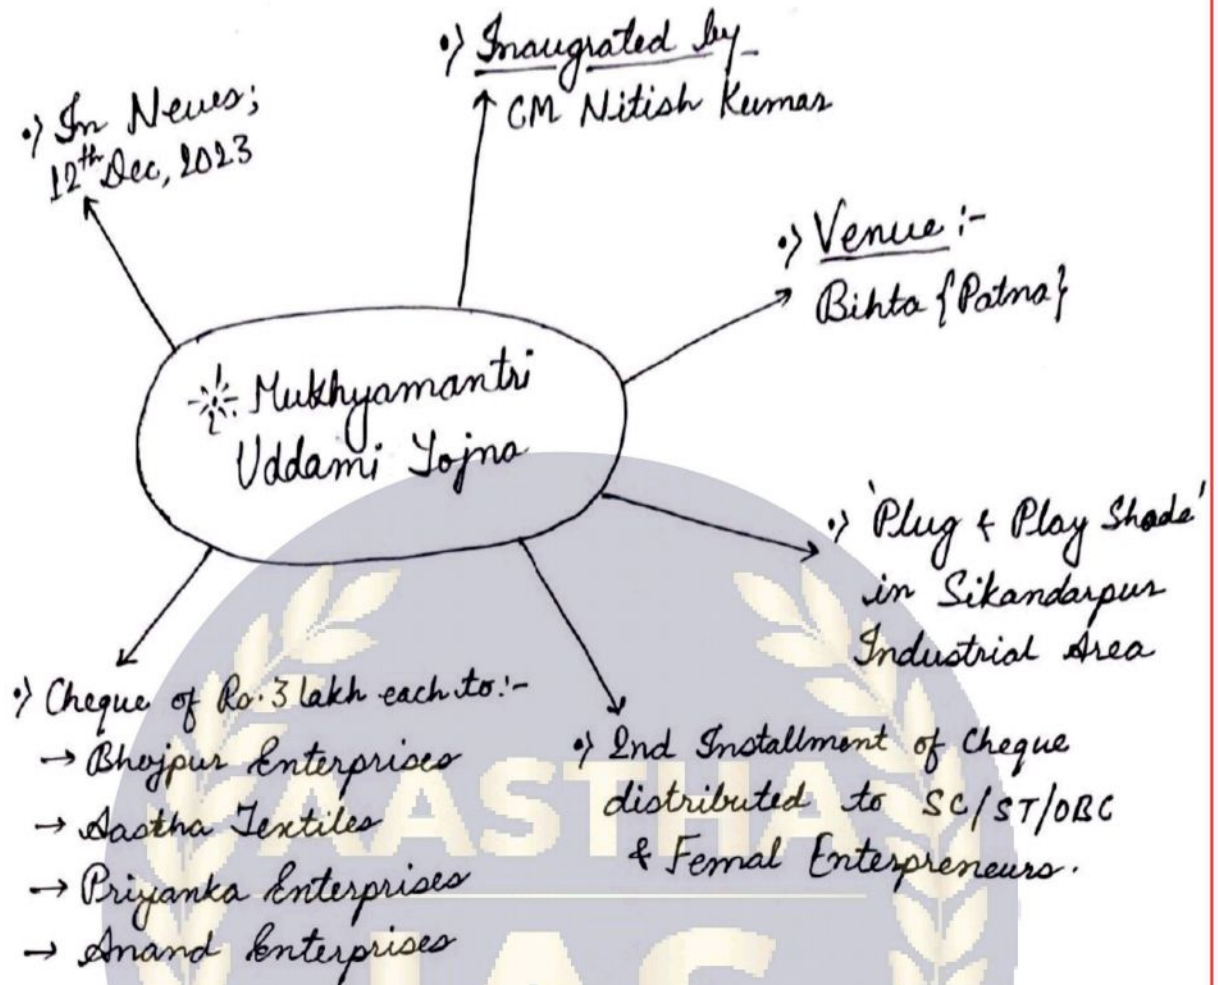 •) Inaugrated by
CM Nitish Kumar
•) In News;
12th Dec, 2023
•) Venue :-
Bihta {Patna}
Mukhyamantri
Uddami Yojna
•) 'Plug & Play Shade'
in Sikandarpur
Industrial Area
•) Cheque of Rs. 3 lakh each to :-
→ Bhojpur Enterprises
→ Aastha Textiles
→ Priyanka Enterprises
→ Anand Enterprises
•) 2nd Installment of Cheque
distributed to SC/ST/OBC
& Femal Enterpreneurs.
AASTHA
IAS